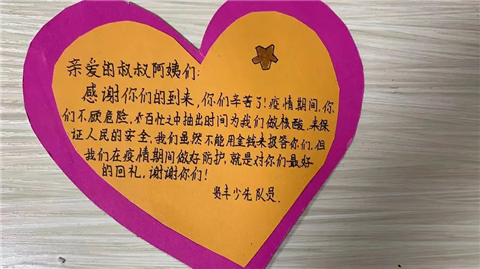 亲爱的叔叔阿姨们:
感谢你们的到来,你们辛苦了!疫情期间,你
们不顾危险,于百忙之中抽出时间为我们做核酸,来保
证人民的安全,我们虽然不能用金钱来报答你们,但
我们在疫情期间做好防护,就是对你们最好
的回礼,谢谢你们!
贵丰少先队员